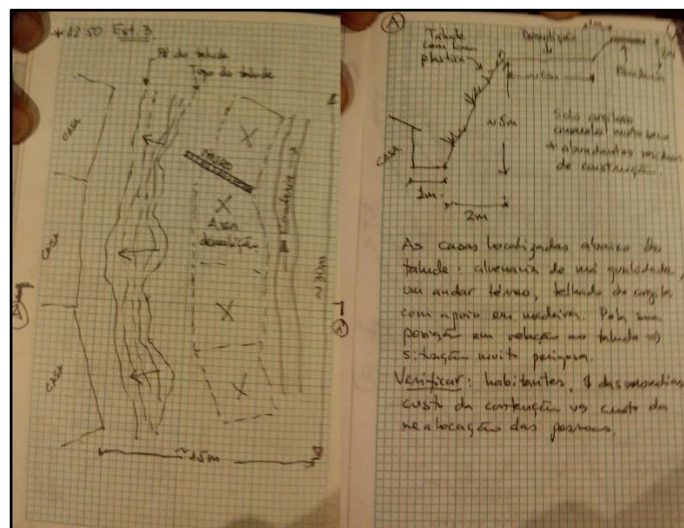 1250 Est. 3
Pé do talude
Topo do talude
CASA
CASA
CASA
MURO
Area
demolição
~30m
~15m
A
Talude
com lona
plastica
Demolição
~5m
CASA
1m
2m
Solo argiloso
+ abundantes residuos
de construção
As casas localizadas abaixo do
talude: alvenaria de má qualidade,
um andar térreo, telhado de argila
com apoio em madeira. Pela sua
posição em relação ao talude =>
situação muito perigosa.
Verificar: habitantes, $ das moradias
custo da contenção vs custo da
realocação das pessoas.